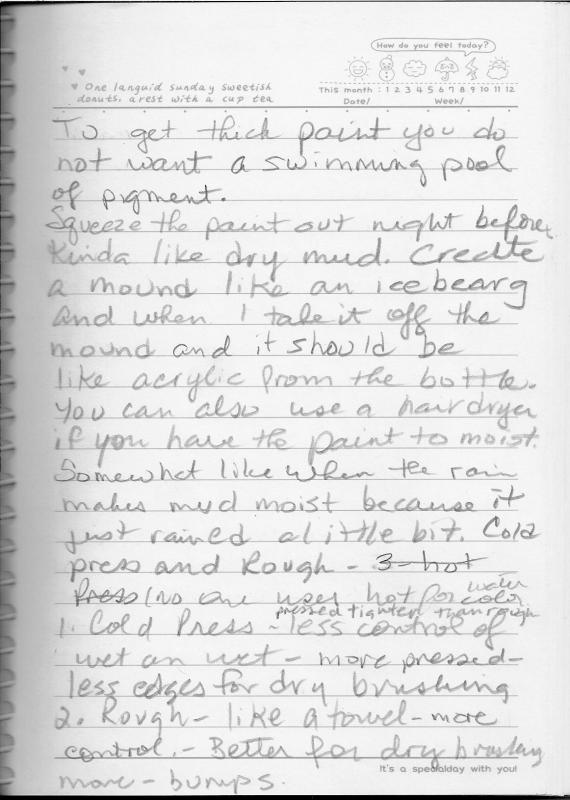 How do you feel today?
One languid sunday sweetish
donuts. a rest with a cup tea
This month : 1 2 3 4 5 6 7 8 9 10 11 12
Date/ Week/
To get thick paint you do
not want a swimming pool
of pigment.
Squeeze the paint out night before,
Kinda like dry mud. Create
a mound like an ice bearg
and when I take it off the
mound and it should be
like acrylic from the bottle.
You can also use a hairdryer
if you have the paint to moist.
Somewhat like when the rain
makes mud moist because it
just rained a little bit. Cold
press and Rough - 3-hot
Press (no one uses hot for water color
1. Cold Press - less control of
pressed tighter than rough
wet on wet - more pressed -
less edges for dry brushing
2. Rough - like a towel - more
control. - Better for dry brushing
more - bumps.
It's a specialday with you!